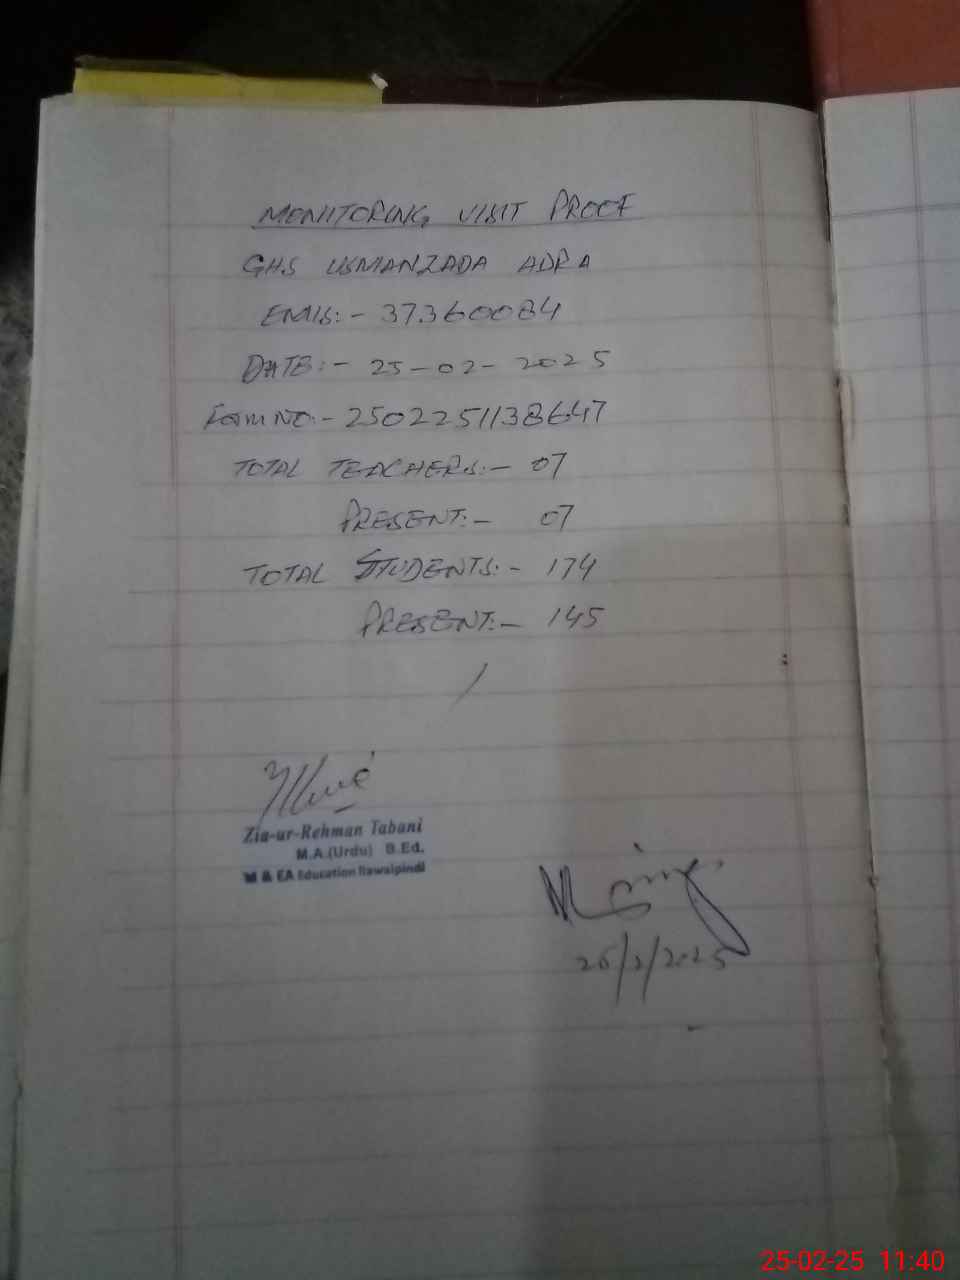 MONITORING VISIT PROOF
GHS USMANZADA ADRA
EMIS:- 37360084
DATE:- 25-02-2025
FORM NO:- 2502251138647
TOTAL TEACHERS:- 07
PRESENT:- 07
TOTAL STUDENTS:- 174
PRESENT:- 145
Zia-ur-Rehman Tabani
M.A.(Urdu) B.Ed.
M & EA Education Rawalpindi
25/2/2025
25-02-25 11:40